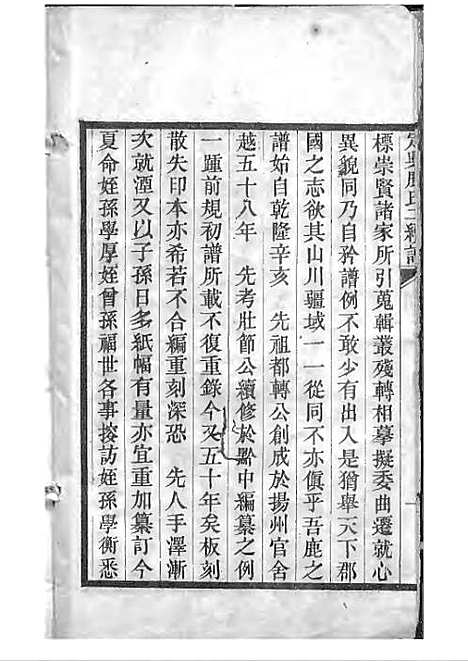 標崇賢諸家所引蒐輯叢殘轉相摹擬委曲遷就心
異貌同乃自矜譜例不敢少出入是猶舉天下郡
國之志欲其山川疆域一一從同不亦傎乎吾鹿之
譜始自乾隆辛亥 先祖都轉公創成於揚州官舍
越五十八年 先考壯節公續修於黔中編纂之例
一踵前規初譜所載不復重錄今又五十年矣板刻
散失印本亦希若不合編重刻深恐 先人手澤漸
次就湮又以子孫日多紙幅有量亦宜重加纂訂今
夏命姪孫學厚姪曾孫福世各事搜訪姪孫學衡悉